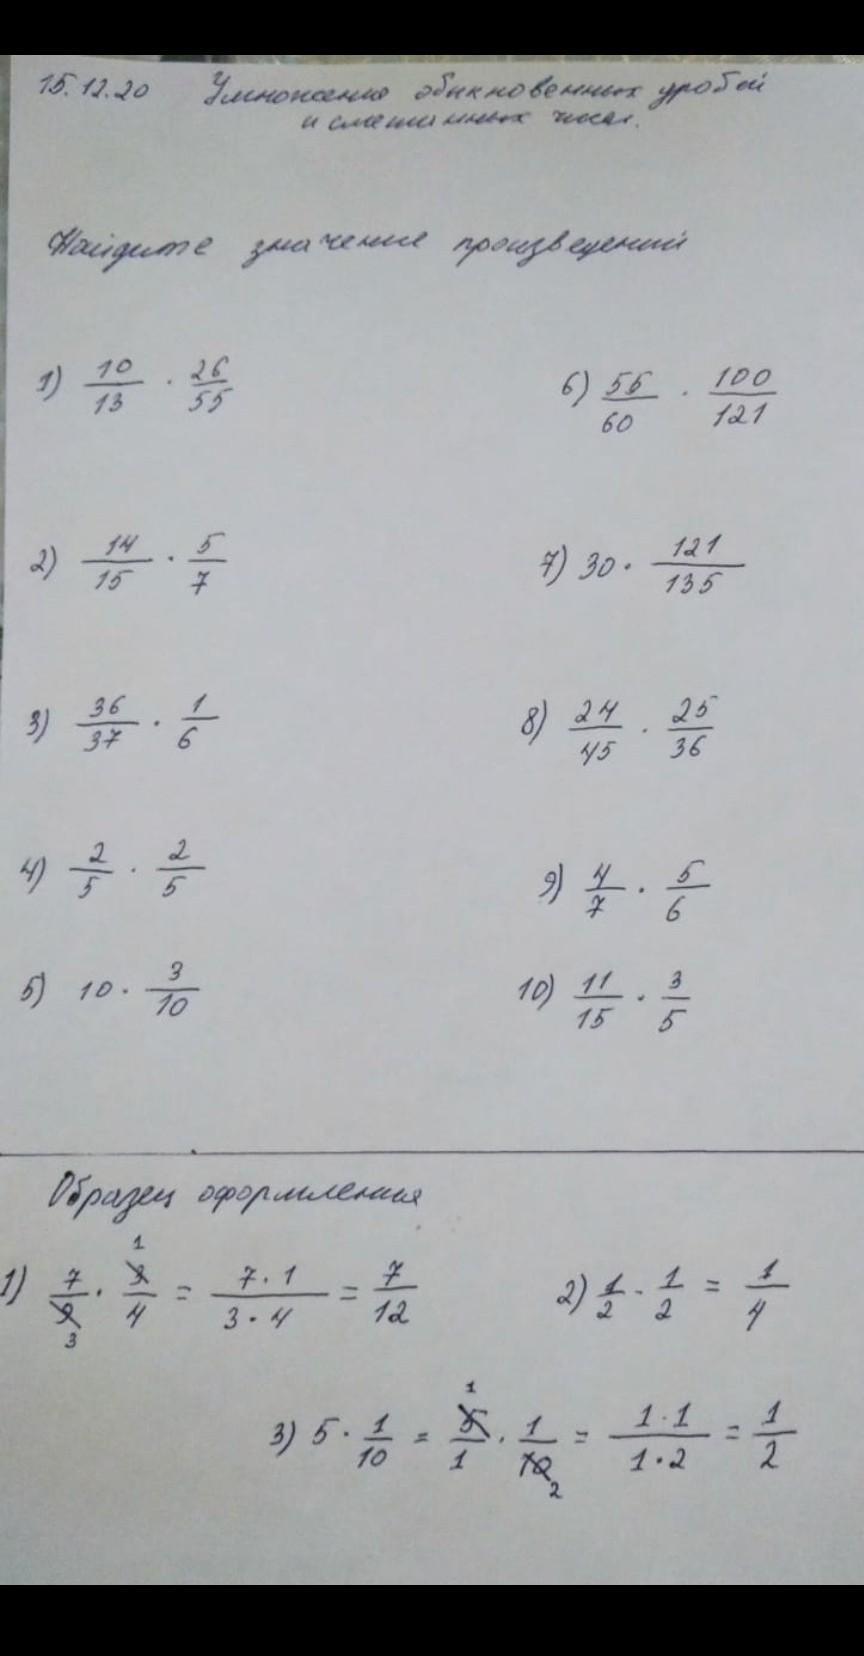 15.12.20 Умножение обыкновенных дробей
и смешанных чисел.
Найдите значение произведений
1) 10/13 · 26/55
2) 14/15 · 5/7
3) 36/37 · 1/6
4) 2/5 · 2/5
5) 10 · 3/10
6) 55/60 · 100/121
7) 30 · 121/135
8) 24/45 · 25/36
9) 4/7 · 5/6
10) 11/15 · 3/5
Образец оформления
1) 7/9 · 3/4 = 7·1/3·4 = 7/12
2) 1/2 · 1/2 = 1/4
3) 5 · 1/10 = 5/1 · 1/10 = 1·1/1·2 = 1/2